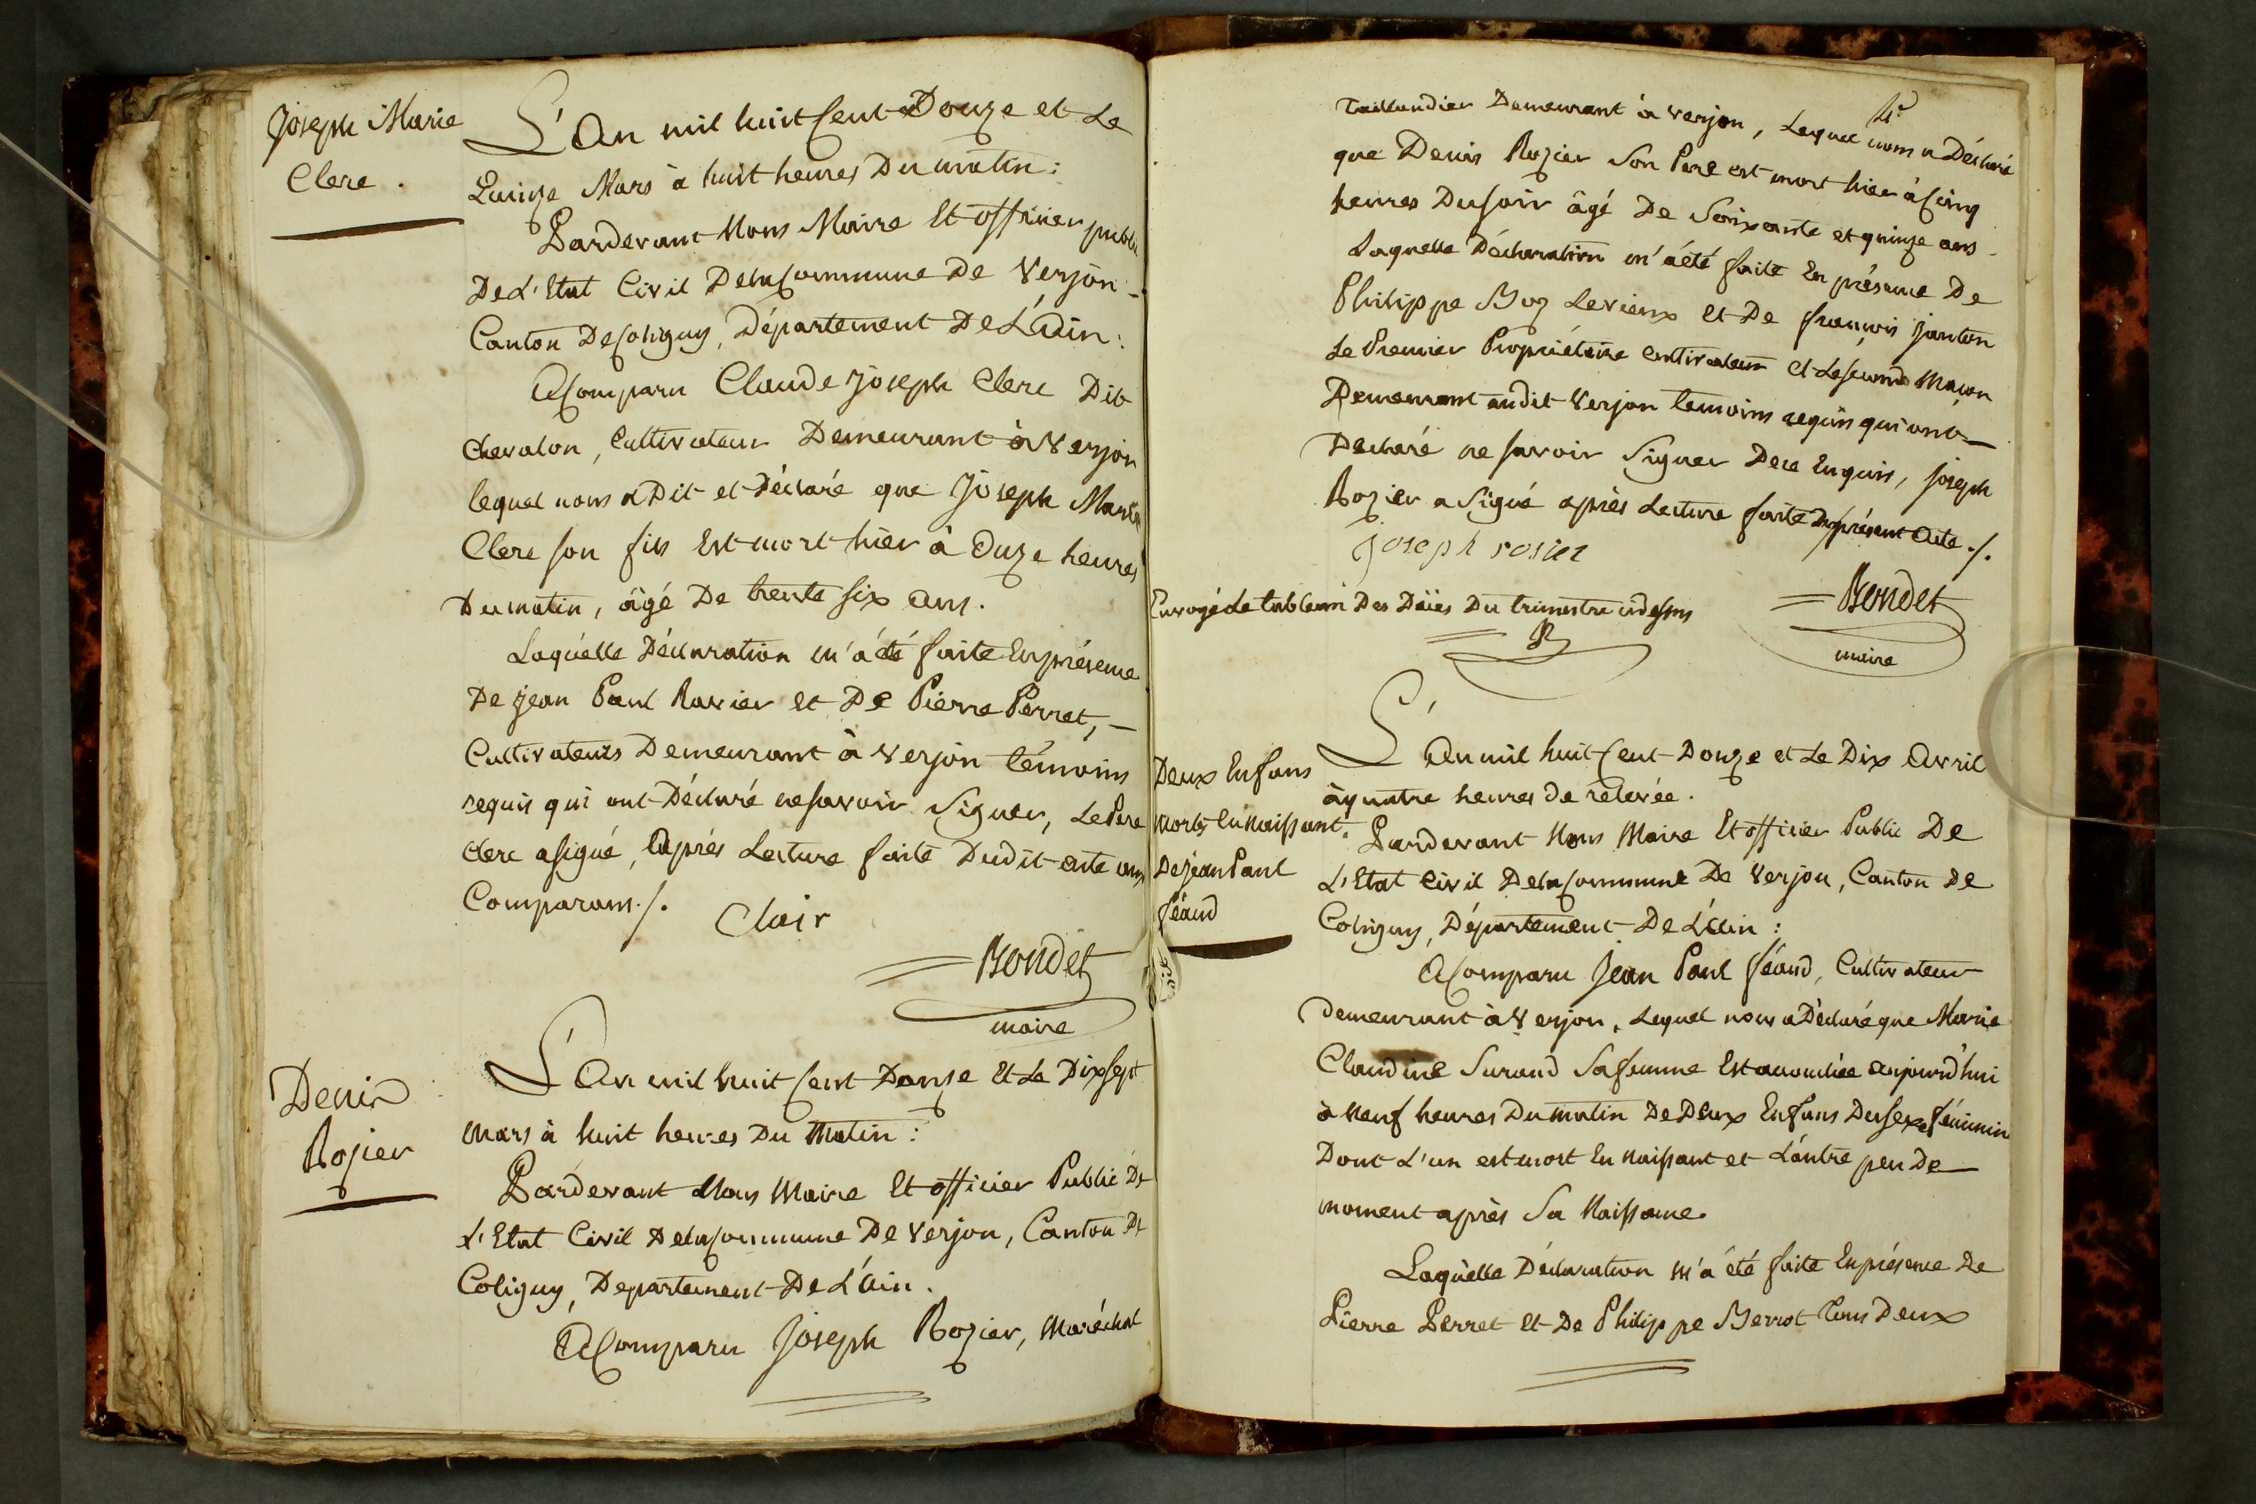 Joseph Marie
Clerc.
L'An mil huit Cent Douze et Le
Quinze Mars à huit heures Du matin:
Pardevant Nous Maire Et officier public
De L'Etat Civil De la Commune De Verjon -
Canton De Coligny, Département De L'Ain:
A Comparu Claude Joseph Clerc Dit
chevalon, Cultivateur Demeurant à Verjon
lequel nous a Dit et Déclaré que Joseph Marie
Clerc son fils Est mort hier à Onze heures
Du matin, âgé De trente six Ans.
Laquelle Déclaration m'a été faite En présence
De jean Paul Ravier et De Pierre Perret, -
Cultivateurs Demeurant à Verjon témoins
requis qui ont Déclaré ne savoir Signer, Le Pere
clerc a signé, Après Lecture faite Dudit acte aux
Comparans ./.
Clair
Bondet
maire
Denis
Rozier
L'An mil huit Cent Douze Et Le Dix sept
Mars à huit heures Du Matin:
Pardevant Nous Maire Et officier Public De
L'Etat Civil De la Commune De Verjon, Canton De
Coligny, Departement De L'Ain.
A Comparu Joseph Rozier, Maréchal
Taillandier Demeurant à Verjon, Lequel nous a Déclaré
que Denis Rozier Son Pere est mort hier à Cinq
heures Du soir âgé De Soixante et quinze ans.
Laquelle Déclaration m'a été faite En présence De
Philippe Boz Levieux et De françois Janton
Le Premier Propriétaire cultivateur et Le second Maçon
Demeurant audit Verjon témoins requis qui ont
Déclaré ne savoir Signer De ce Enquis, Joseph
Rozier a Signé après Lecture faite Du présent Acte ./.
Joseph rosier
Envoyé le tableau Des Décès Du trimestre ci dessus
B
Bondet
maire
Deux Enfans
morts En Naissant
De jean Paul
féaud
L'An mil huit Cent Douze et Le Dix Avril
à quatre heures de relevée.
Pardevant Nous Maire Et officier Public De
L'Etat Civil De la Commune De Verjon, Canton De
Coligny, Département De L'Ain:
A Comparu Jean Paul féaud, Cultivateur
Demeurant à Verjon, Lequel nous a Déclaré que Marie
Claudine Suraud Sa femme Est accouchée aujourd'hui
à Neuf heures Du matin De Deux Enfans Du sexe féminin
Dont L'un est mort En Naissant et L'autre peu De
moment après Sa Naissance.
Laquelle Déclaration m'a été faite En présence De
Pierre Perret et De Philippe Berrot tous Deux